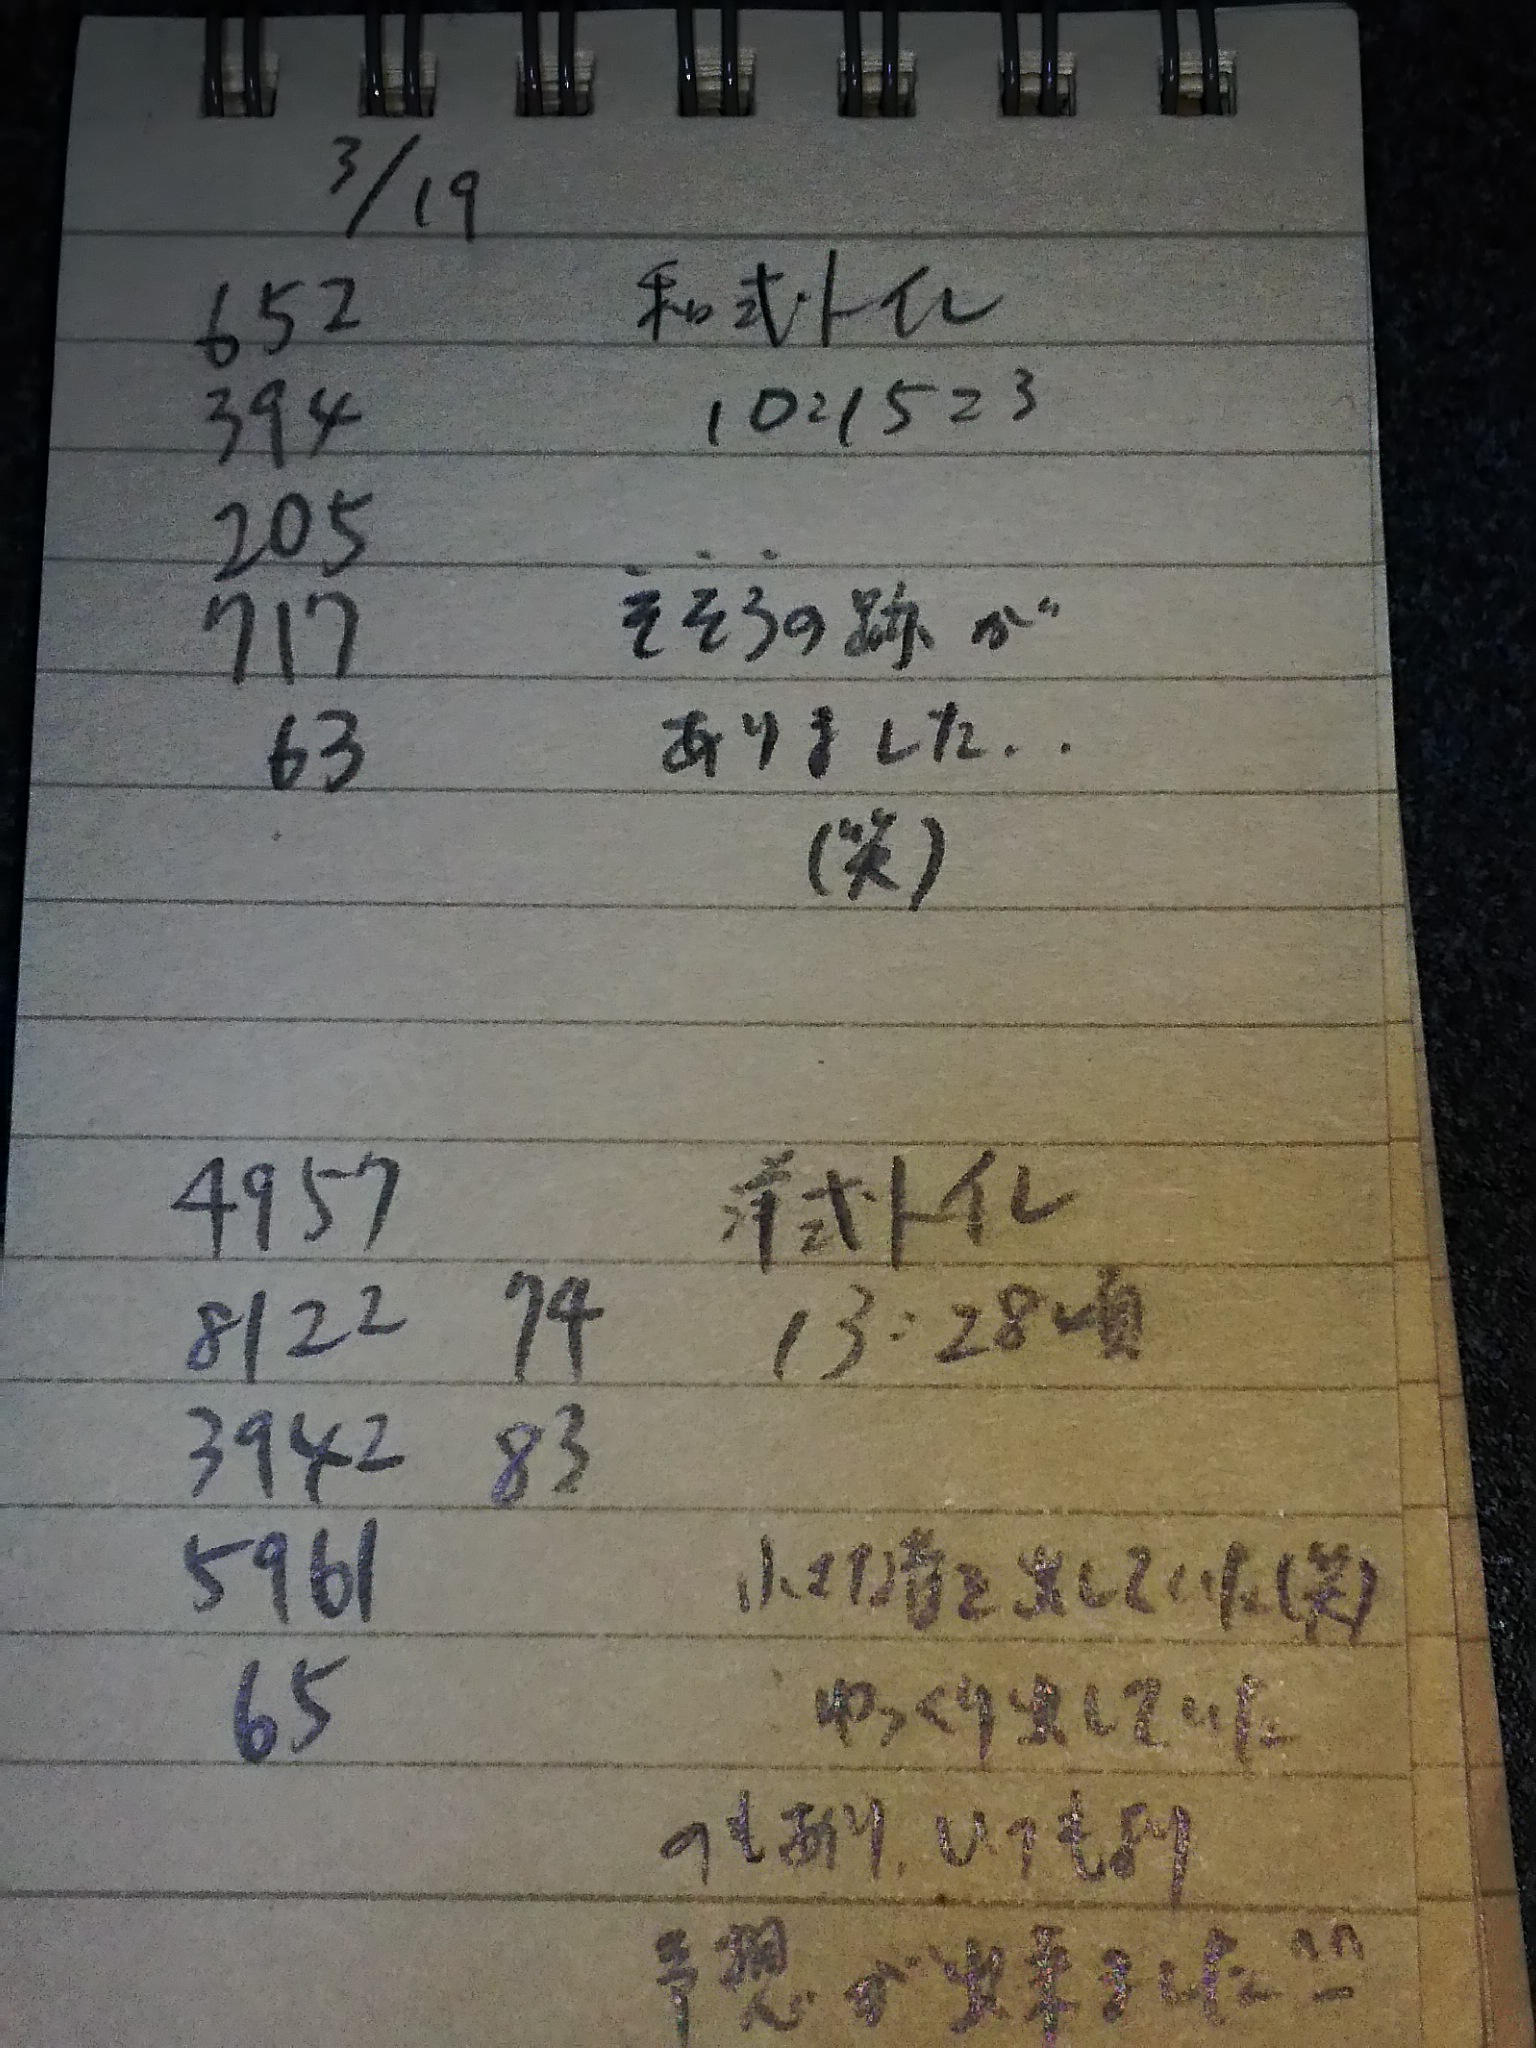 3/19
652 和式トイレ
394 10:15:23
205
717 そそうの跡が
63 ありました..
(笑)
4957 洋式トイレ
8122 74 13:28頃
3942 83
5961 小さな音を出していた(笑)
65 ゆっくり出していた
のもあり、いつもより
予想が出来ました^^